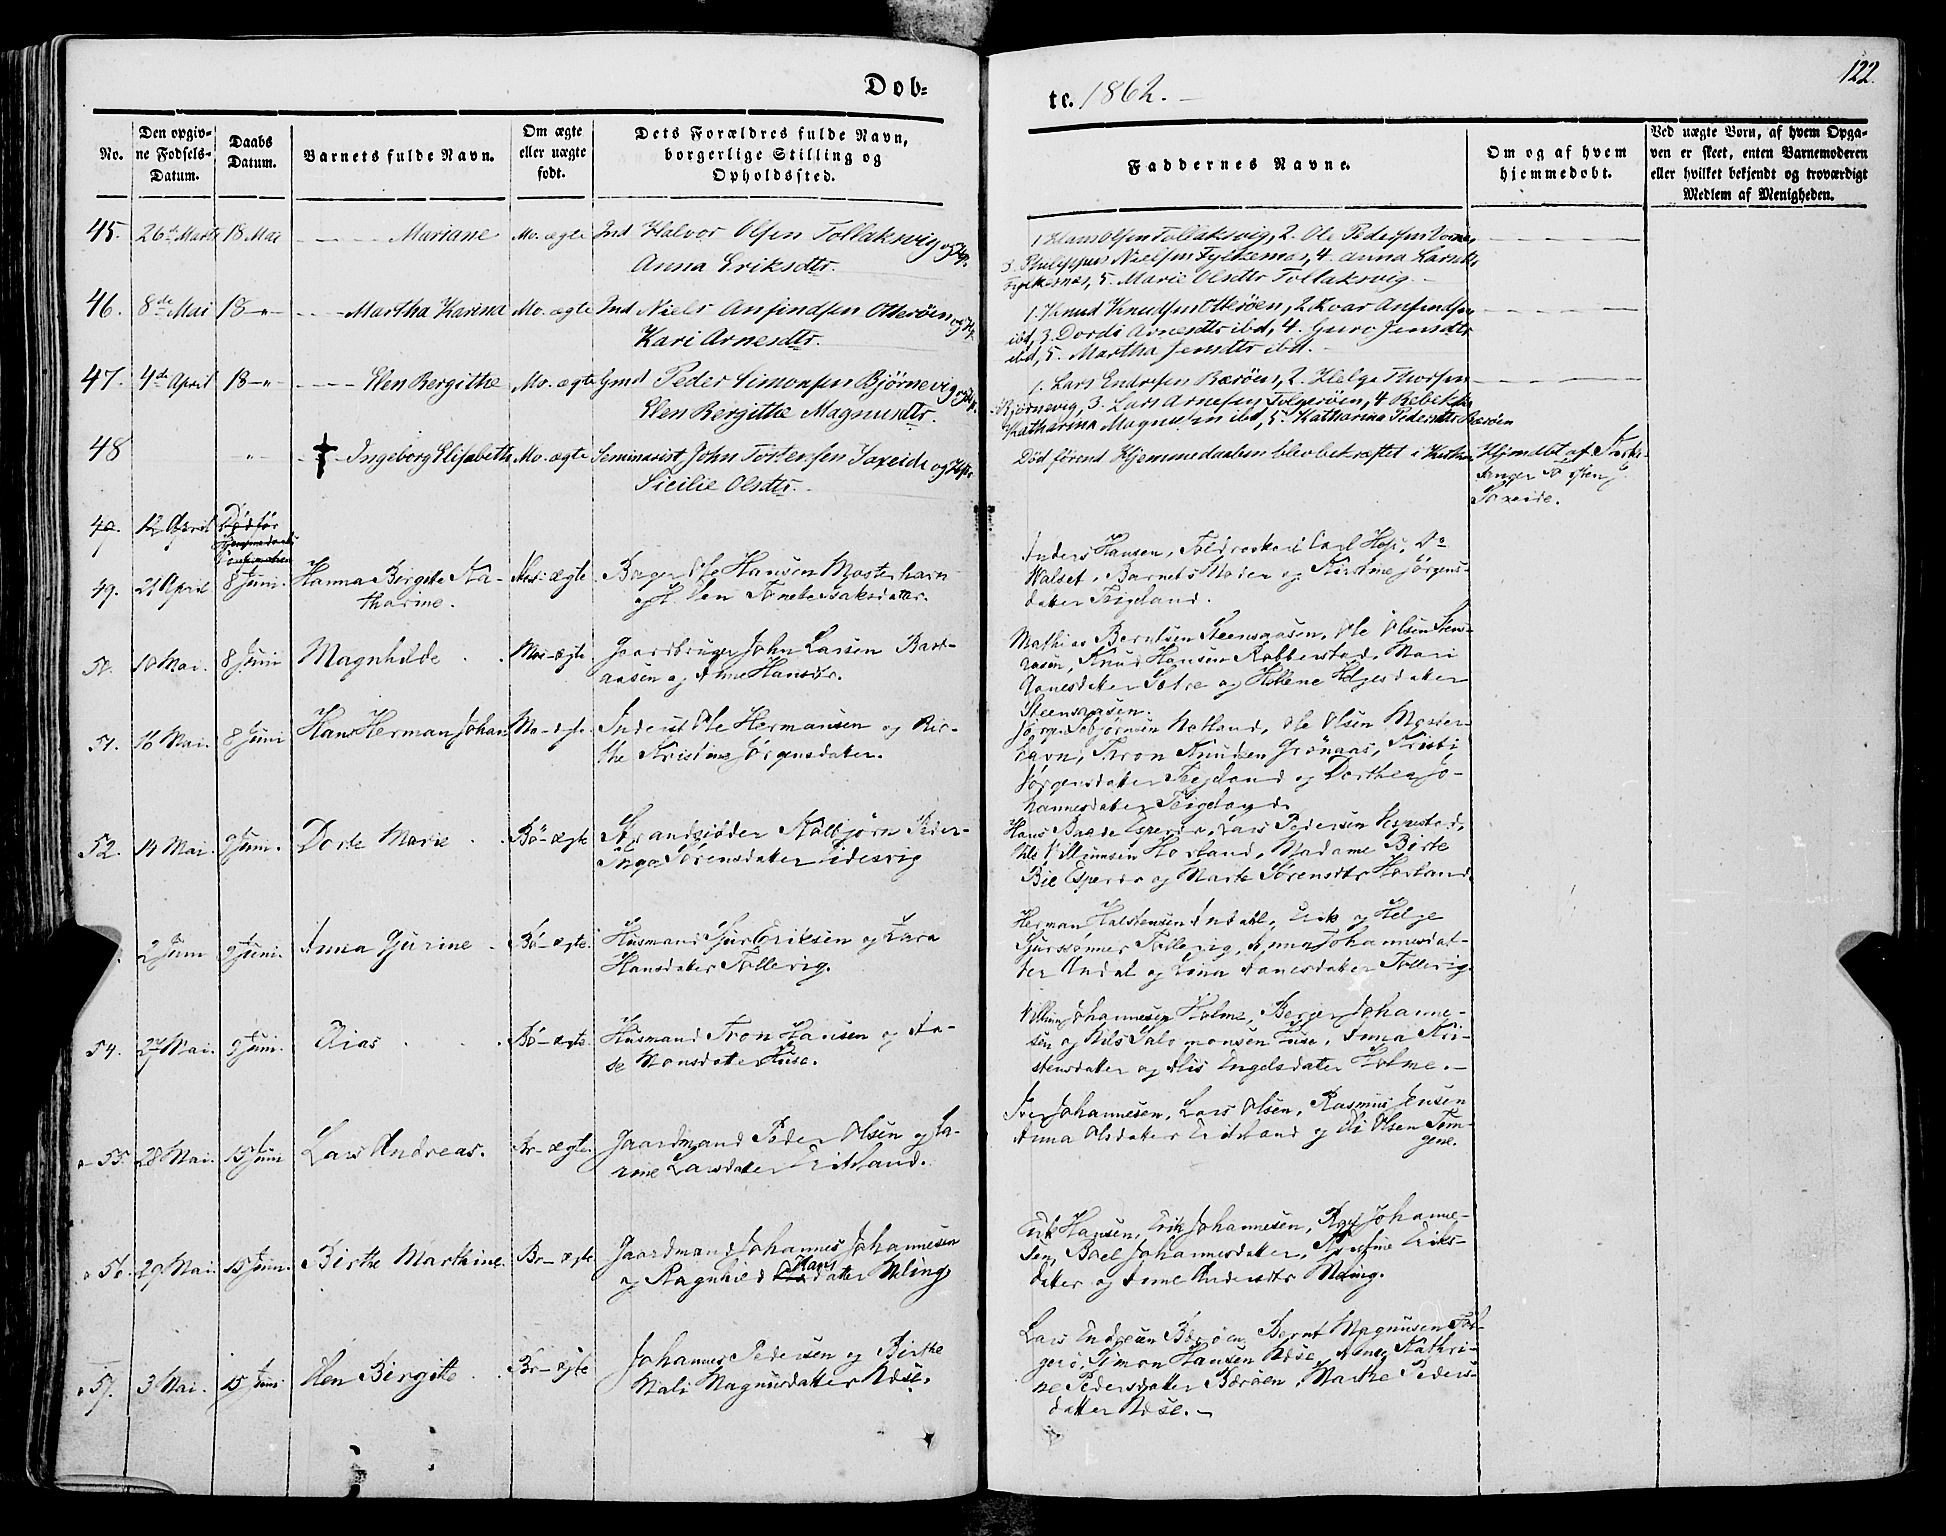 Døb=
te. 1862.
122.
No.
Den opgiv=
ne Fødsels=
Datum.
Daabs
Datum.
Barnets fulde Navn.
Om ægte
eller uægte
født.
Dets Forældres fulde Navn,
borgerlige Stilling og
Opholdssted.
Faddernes Navne.
Om og af hvem
hjemmedøbt.
Ved uægte Børn, af hvem Opga=
ven er skeet, enten Barnemoderen
eller hvilket bekjendt og troværdigt
Medlem af Menigheden.
45. 26de Marts 18 Mai Mariane Mo. ægte Ind Halvor Olsen Tollaksvig og
Anna Eriksdtr.
1 Hans Olsen Tollaksvig, 2. Ole Pedersen
3. Philippus Nielsen Fylkesnæs, 4. Anna
Fylkesnæs, 5. Marie Olsdtr Tollaksvig.
46. 8de Mai 18 -"- Martha Karina Mo. ægte Ind Niels Anfindsen Otterøen og
Kari Arnesdtr.
1. Knud Knudsen Otterøen, 2. Anfindsen
ibd, 3. Dordi Arnesdtr ibd, 4. Guro Jensdtr
ibd, 5. Martha Jensdtr ibd.
47. 4de April 18 -"- Elen Bergithe Mo. ægte Gmd Peder Simonsen Bjørnevig og
Elen Bergithe Magnusdtr.
1. Lars Endresen Bærøen, 2. Helge Thorsen
Bjørnevig, 3. Lars Arnesen Folgerøen, 4 Rebekka
Katharina Magnusen ibd, 5. Katharina Pedersdtr Bærøen
48 -"- Ingeborg Elisabeth Mo. ægte Seminarist John Torstensen Vaxeide og
Sicilie Olsdtr.
Død førend Hjemmedaaben blev bekræftet i Kirken
Hjemdbt af
49. 12 April Død før
49. 21 April 8 Juni. Hanna Birgitte Ka-
tharine. Mos- ægte Ole Hansen Mosterhavn
og Isaksdatter.
Anders Hansen, Carl Hop,
Valset, Barnets Moder og Kirstine Jørgens-
datter Teigeland.
50. 10 Mai. 8 Juni Magnhilde Mos- ægte Gaardbruger John Larsen Bart-
aasen og Ane Hansdtr.
Mathias Berntsen Steensaasen, Ole Olsen Stens-
aasen, Knud Hansen Robberstad, Mari
Aanesdatter Sætre og Hellene Helgesdatter
Steensaasen.
51. 16 Mai. 8 Juni Hans Herman Johan Mo- ægte Inderst Ole Hermansen og Bir-
the Kristine Jørgensdatter.
Jørgen Notland, Ole Olsen Moster-
havn, Tron Knudsen Grønaas, Kristi
Jørgensdatter Teigeland og Dorthea Jo-
hannesdatter Teigeland.
52. 14 Mai. 9 Juni. Dorte Marie Bø- ægte Strandsidder Kolbjørn Peder-
Inga Sørensdatter Eidesvig
Hans Baade Espevær, Lars Pedersen Vespestad,
Nils Villumsen Hovland, Madame Birte
Bie Espevær og Marte Sørensdtr Hovland.
2 Juni 9 Juni. Anna Gjurine Bø- ægte. Husmand Gjur Eriksen og Lava
Hansdatter Tollevig.
Herman Halstensen Indahl, Erik og Helge
Gjurssønner Tollevig, Anna Johannesdat-
ter Indal og Anesdatter Tollevig.
54. 27 Mai. 9 Juni. Elias Bø- ægte. Husmand Tron Hansen og Aa-
se Monsdatter Huse.
Villum Johannesen Holme, Berge Johanne-
sen og Nils Salomonsen Fuse, Anna Kri-
stensdatter og Alis Engelsdatter Holme.
55. 28 Mai. 15 Juni Lars Andreas. Br- ægte. Gaardmand Peder Olsen og Ja-
rine Larsdatter Eidsland.
Iver Johannesen, Lars Olsen, Rasmus Jensen
Anna Olsdatter Eidsland og Eli Olsen
56. 29 Mai. 15 Juni. Birthe Marthine. Br- ægte Gaardmand Johannes Johannesen
og Ragnhild Hans datter Meling
Erik Hansen, Erik Johannesen, Johanne-
sen, Boel Johannesdatter, Eriks-
datter og Anne Andersdtr Meling.
57. 3 Mai. 15 Juni Elen Birgitte Br- ægte Johannes Pedersen og Birthe
Mali Magnusdatter Udse.
Lars Endresen Bærøen, Bernt Magnussen Fol-
gerø, Simon Hansen Udse, Kathri-
ne Pedersdatter Bærøen, Marthe Peders-
datter Udse.